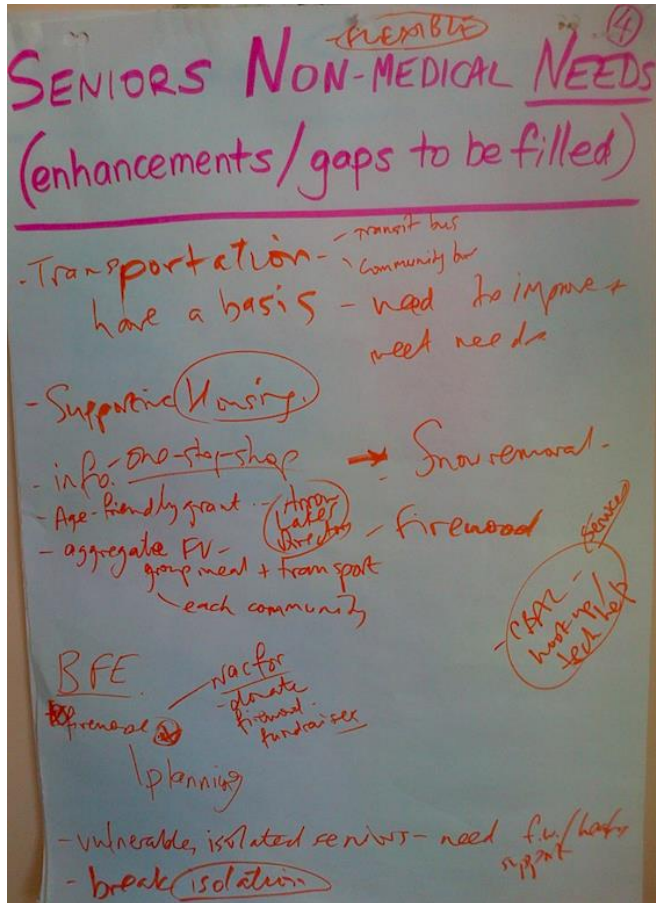 FLEXIBLE
4
SENIORS NON-MEDICAL NEEDS
(enhancements/gaps to be filled)
- Transportation - transit bus
community bus
have a basis - need to improve +
meet needs
- Supportive Housing.
- info: one-stop-shop → Snow removal -
- Age-friendly grant - Arrow
Lakes
Directory
- firewood
- aggregate FV -
group meal + transport
each community
service
- CBAL -
hook up/
tech help
BFE
firewood
Nacfor
- donate
firewood
fundraiser
planning
- vulnerable, isolated seniors - need f.w./
support
- break isolation